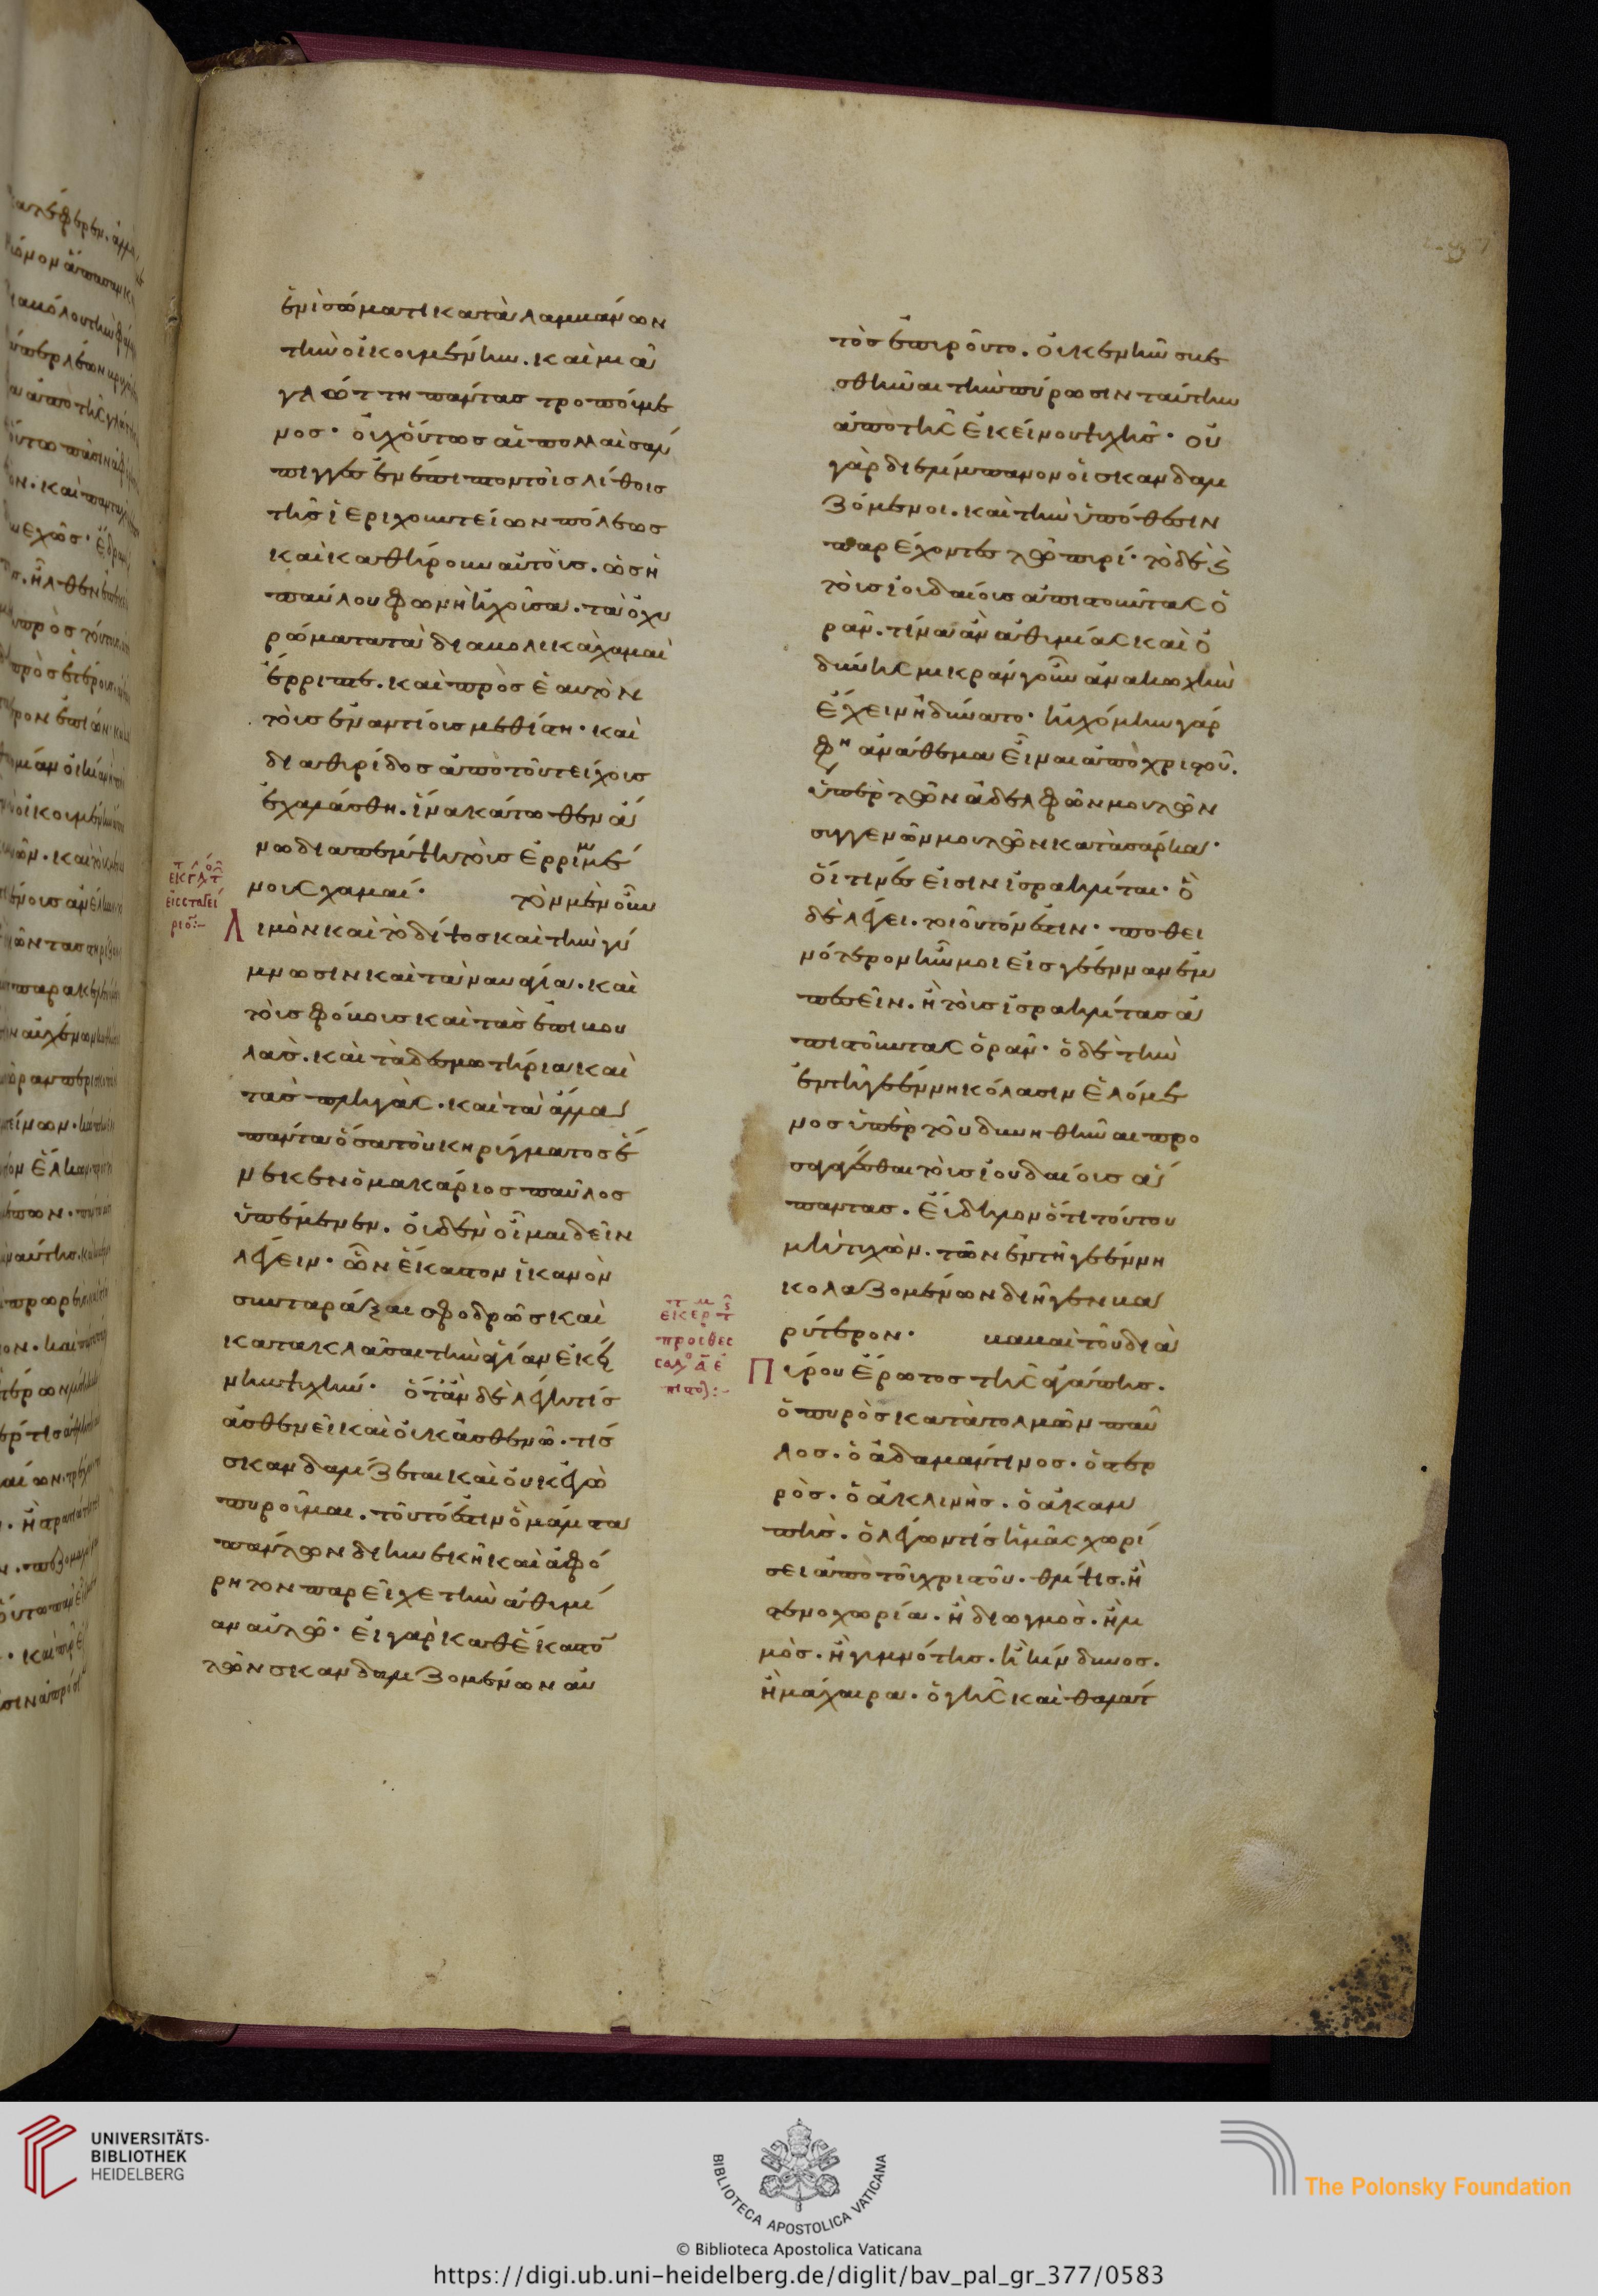 ἑνὶ σώματι καταλαμβάνων
τὴν οἰκουμένην. καὶ μιᾶ
γλώττη πάντας τροπούμε
νος· οὐχ οὕτως αἱ πολλαὶ σάλ
πιγγες ἐνέπιπτον τοῖς λίθοις
τῆς ἱεριχουντείων πόλεως
καὶ καθήρουν αὐτοὺς. ὡς ἡ
παύλου φωνὴ ἠχοῦσα. τὰ ὀχυ
ρώματα τὰ διαβολικὰ χαμαὶ
ἔρριπτε. καὶ πρὸς ἑαυτὸν
τοὺς ἐναντίους μεθίστη· καὶ
διαθυρίδος ἀπὸ τοῦ τείχους
ἐχαλάσθη. ἵνα κάτωθεν ἄ
νω διαπέμψη τοὺς ἐρριμμέ
νους χαμαί· τὸν μὲν οὖν
Λιμὸν καὶ τὸ δίψος καὶ τὴν γύ
μνωσιν καὶ τὰ ναυάγια. καὶ
τοὺς φόβους καὶ τὰς ἐπιβου
λὰς. καὶ τὰ δεσμωτήρια καὶ
τὰς πληγὰς. καὶ τὰ ἄλλα
πάντα ὅσα τοῦ κηρύγματος ἕ
νεκεν ὁ μακάριος παῦλος
ὑπέμενεν. οὐδὲν οἶμαι δεῖν
λέγειν· ὧν ἕκαστον ἱκανὸν
συνταράξαι σφοδρῶς καὶ
κατακλᾶσαι τὴν ἁγίαν ἐκεί
νην ψυχήν· ὅταν δὲ λέγη τίς
ἀσθενεῖ καὶ οὐκ ἀσθενῶ. τίς
σκανδαλίζεται καὶ οὐκ ἐγὼ
πυροῦμαι. τοῦτό ἐστιν ὃ μάλιστα
πάντων διηνεκῆ καὶ ἀφό
ρητον παρεῖχε τὴν ἀθυμί
αν αὐτῶ· εἰ γὰρ καθέκαστον
τῶν σκανδαλιζομένων αὐ
τὸς ἐπυροῦτο. οὐκ ἐνῆν σβε
σθῆναι τὴν πύρωσιν ταύτην
ἀπὸ τῆς ἐκείνου ψυχῆς· οὐ
γὰρ διελίμπανον οἱ σκανδαλι
ζόμενοι. καὶ τὴν ὑπόθεσιν
παρέχοντες τῶ πυρί· τὸ δὲ
τοὺς ἰουδαίους ἀπιστοῦντας ὁ
ρᾶν. τίνα ἂν ἀθυμίας καὶ ὀ
δύνης μικρὰν γοῦν ἀνακωχὴν
ἔχειν ἠδύνατο· ηὐχόμην γάρ
φη ἀνάθεμα εἶναι ἀπὸ χριστοῦ.
ὑπὲρ τῶν ἀδελφῶν μου τῶν
συγγενῶν μου τῶν κατὰ σάρκα·
οἵτινές εἰσιν ἰσραηλῖται· ὃ
δὲ λέγει. τοιοῦτόν ἐστιν· ποθει
νότερον ἦν μοι εἰς γέενναν ἐμ
πεσεῖν. ἢ τοὺς ἰσραηλίτας ἀ
πιστοῦντας ὁρᾶν· ὁ δὲ τὴν
ἐν τῆ γεέννη κόλασιν ἑλόμε
νος ὑπὲρ τοῦ δυνηθῆναι προ
σαγαγέσθαι τοὺς ἰουδαίους ἅ
παντας. εὔδηλον ὅτι τούτου
μὴ τυχὼν. τῶν ἐν τῆ γεέννη
κολαζομένων διῆγεν βα
ρύτερον· κακαὶ τοῦ διὰ
Πύρου ἔρωτος τῆς ἀγάπης.
ὁ πυρὸς κατατολμῶν παῦ
λος. ὁ ἀδαμάντινος. ὁ στερ
ρὸς. ὁ ἀκλινὴς. ὁ ἀκαμ
πὴς. ὁ λέγων τίς ἡμᾶς χωρί
σει ἀπὸ τοῦ χριστοῦ. θλίψις. ἢ
στενοχωρία. ἢ διωγμὸς. ἢ λι
μὸς. ἢ γυμνότης. ἢ κίνδυνος.
ἢ μάχαιρα. ὁ γῆς καὶ θαλάτ
UNIVERSITÄTS-
BIBLIOTHEK
HEIDELBERG
BIBLIOTECA APOSTOLICA VATICANA
The Polonsky Foundation
© Biblioteca Apostolica Vaticana
https://digi.ub.uni-heidelberg.de/diglit/bav_pal_gr_377/0583